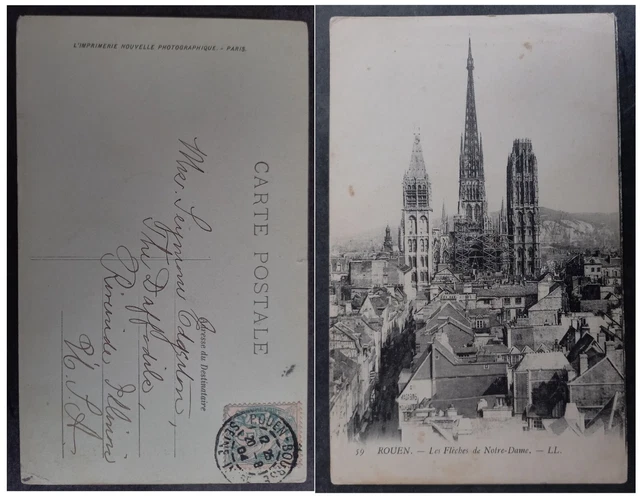 L'IMPRIMERIE NOUVELLE PHOTOGRAPHIQUE. - PARIS.
CARTE POSTALE
Adresse du Destinataire
Mrs. Seymour Edgerton,
The Daffodils,
Riverside, Illinois
U.S.A.
ROUEN
04
59 ROUEN. - Les Flèches de Notre-Dame. - LL.